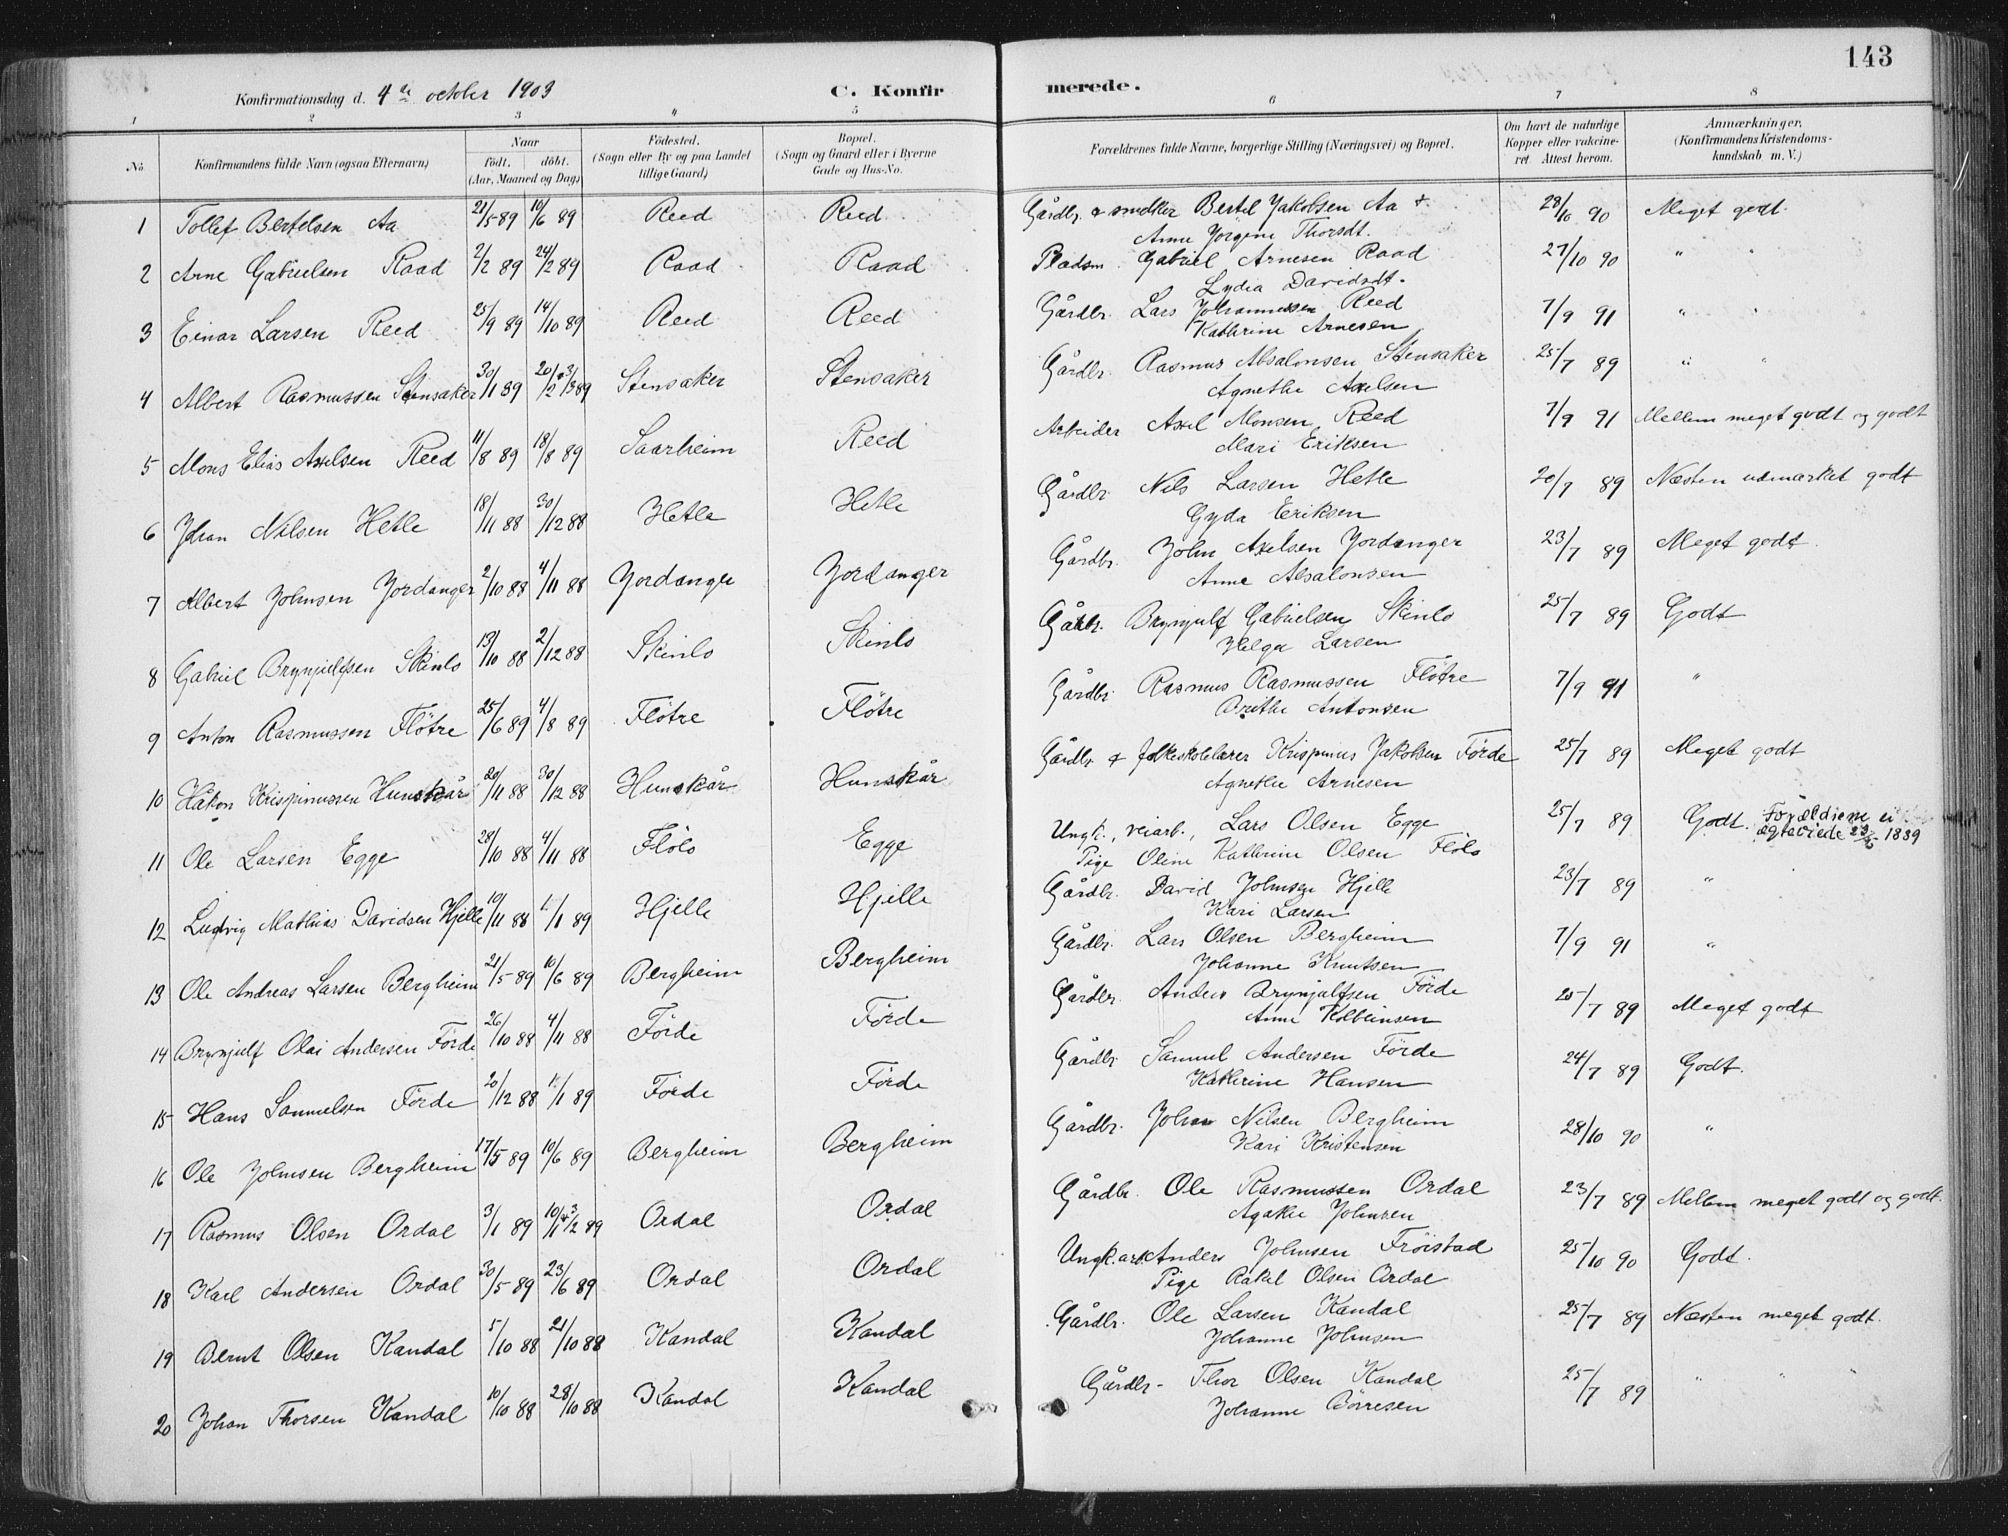 143
Konfirmationsdag d. 4de october 1903 C. Konfirmerede.
1 2 3 4 5 6 7 8
No. Konfirmandens fulde Navn (ogsaa Efternavn) Naar födt. döbt. (Aar, Maaned og Dag) Födested. (Sogn eller By og paa Landet tillige Gaard) Bopæl. (Sogn og Gaard eller i Byerne Gade og Hus-No.) Forældrenes fulde Navne, borgerlige Stilling (Næringsvei) og Bopæl. Om havt de naturlige Kopper eller vakcineret. Attest herom. Anmærkninger. (Konfirmandens Kristendomskundskab m. V.)
1 Tollef Bertelsen Aa 21/5 89 10/6 89 Reed Reed Gårdbr. & snedker Bertel Jakobsen Aa & 28/10 90 Meget godt.
Anne Jörgine Thorsdt.
2 Arne Gabrielsen Raad 2/2 89 24/2 89 Raad Raad Pladsm. Gabriel Arnesen Raad 27/10 90 " "
Lydia Davidsdt.
3 Einar Larsen Reed 25/9 89 14/10 89 Reed Reed Gårdbr. Lars Johannessen Reed 7/9 91 " "
Kathrine Arnesen
4 Albert Rasmussen Stensaker 30/1 89 20/2 & 3/3 89 Stensaker Stensaker Gårdbr. Rasmus Absalonsen Stensaker 25/7 89 " "
Agnethe Axelsen
5 Mons Elias Axelsen Reed 11/8 89 18/8 89 Saarheim Reed Arbeider Axel Monsen Reed 7/9 91 Mellem meget godt og godt
Mari Eriksen
6 Johan Nilsen Hetle 18/11 88 30/12 88 Hetle Hetle Gårdbr. Nils Larsen Hetle 20/7 89 Næsten udmærket godt
Gyda Eriksen
7 Albert Johnsen Jordanger 2/10 88 4/11 88 Jordanger Jordanger Gårdbr. John Axelsen Jordanger 23/7 89 Meget godt.
Anne Absalonsen
8 Gabriel Brynjulfsen Skinlo 13/10 88 2/12 88 Skinlo Skinlo Gårbr. Brynjulf Gabrielsen Skinlo 25/7 89 Godt
Helga Larsen
9 Anton Rasmussen Flötre 25/6 89 4/8 89 Flötre Flötre Gårdbr. Rasmus Rasmussen Flötre 7/9 91 "
Brithe Antonsen
10 Håkon Krispinussen Hunskår 20/11 88 30/12 88 Hunskår Hunskår Gårdbr. & folkeskolelærer Krispinus Jakobsen Förde 25/7 89 Meget godt
Agnethe Arnesen
11 Ole Larsen Egge 28/10 88 4/11 88 Flölo Egge Ungk., veiarb., Lars Olsen Egge 25/7 89 Godt. Forældrene ei ægteviede 1889
Pige Oline Kathrine Olsen Flölo
12 Ludvig Mathias Davidsen Hjelle 10/11 88 1/1 89 Hjelle Hjelle Gårdbr. David Johnsen Hjelle 23/7 89 "
Kari Larsen
13 Ole Andreas Larsen Bergheim 21/5 89 10/6 89 Bergheim Bergheim Gårdbr. Lars Olsen Bergheim 7/9 91 "
Johanne Knutsen
14 Brynjulf Olai Andersen Förde 26/10 88 4/11 88 Förde Förde Gårdbr. Anders Brynjulfsen Förde 25/7 89 Meget godt
Anne Kolbeinsen
15 Hans Samuelsen Förde 20/12 88 1/1 89 Förde Förde Gårdbr. Samuel Andersen Förde 24/7 89 Godt.
Kathrine Hansen
16 Ole Johnsen Bergheim 17/5 89 10/6 89 Bergheim Bergheim Gårdbr. Johan Nilsen Bergheim 28/10 90 "
Kari Kristensen
17 Rasmus Olsen Ordal 3/1 89 10/1 & 3/2 89 Ordal Ordal Gårdbr. Ole Rasmussen Ordal 23/7 89 Mellem meget godt og godt.
Agathe Johnsen
18 Karl Andersen Ordal 30/5 89 23/6 89 Ordal Ordal Ungk. Anders Johnsen Fröistad 25/10 90 Godt.
Pige Rakel Olsen Ordal
19 Bernt Olsen Kandal 5/10 88 21/10 88 Kandal Kandal Gårdbr. Ole Larsen Kandal 25/7 89 Næsten meget godt.
Johanne Johnsen
20 Johan Thorsen Kandal 10/10 88 28/10 88 Kandal Kandal Gårdbr. Thor Olsen Kandal 25/7 89 " " "
Johanne Börresen